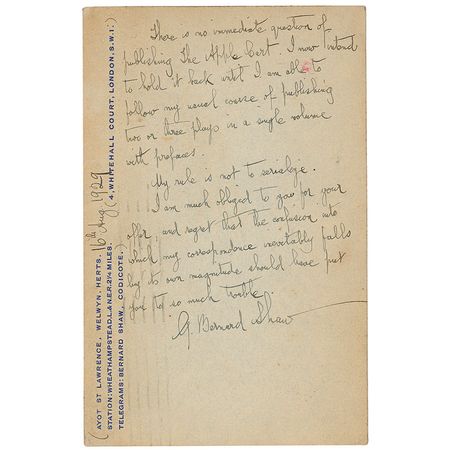 There is no immediate question of
publishing The Apple Cart. I now intend
to hold it back until I am able to
follow my usual course of publishing
two or three plays in a single volume
with prefaces.
My rule is not to serialize.
I am much obliged to you for your
offer, and regret that the confusion into
which my correspondence inevitably falls
by its own magnitude should have put
you to so much trouble.
G. Bernard Shaw
16th Aug. 1929
(4, WHITEHALL COURT, LONDON, S.W.1.)
(AYOT ST LAWRENCE, WELWYN, HERTS.
STATION: WHEATHAMPSTEAD, L.& N.E.R. 2¼ MILES.
TELEGRAMS: BERNARD SHAW, CODICOTE.)